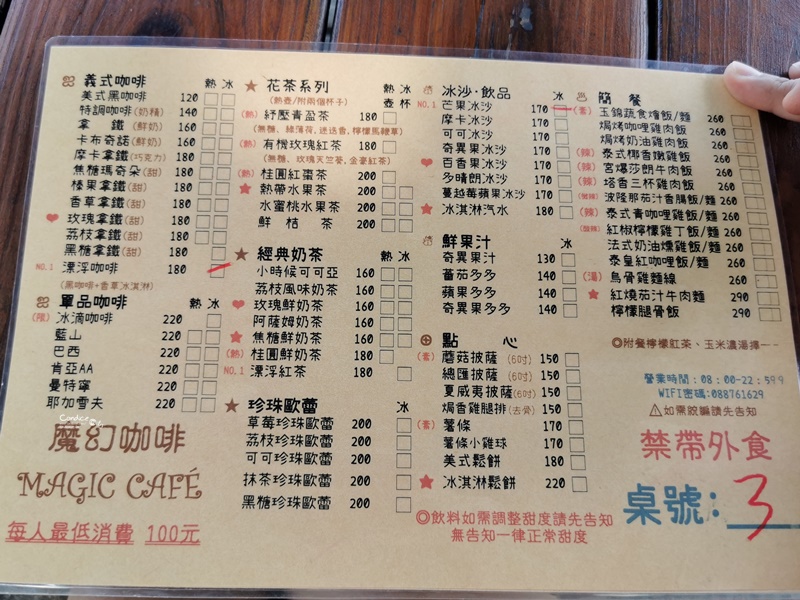 義式咖啡 熱 冰
美式黑咖啡 120
特調咖啡(奶精) 140
拿 鐵(鮮奶) 160
卡布奇諾(鮮奶) 160
摩卡拿鐵(巧克力) 180
焦糖瑪奇朵(甜) 180
榛果拿鐵(甜) 180
香草拿鐵(甜) 180
玫瑰拿鐵(甜) 180
荔枝拿鐵(甜) 180
黑糖拿鐵(甜) 180
NO.1 漂浮咖啡 180
(黑咖啡+香草冰淇淋)
單品咖啡 熱 冰
(限) 冰滴咖啡 220
藍山 220
巴西 220
肯亞AA 220
曼特寧 220
耶加雪夫 220
魔幻咖啡
MAGIC CAFÉ
每人最低消費 100元
花茶系列 熱 冰
(熱壺/附兩個杯子) 壺 杯
(熱) 紓壓青盈茶 180
(無糖, 綠薄荷, 迷迭香, 檸檬馬鞭草)
(熱) 有機玫瑰紅茶 180
(無糖、玫瑰天竺葵, 金豪紅茶)
(熱) 桂圓紅棗茶 200
熱帶水果茶 200
水蜜桃水果茶 200
鮮 桔 茶 200
經典奶茶 熱 冰
小時候可可亞 160
荔枝風味奶茶 160
玫瑰鮮奶茶 160
阿薩姆奶茶 160
焦糖鮮奶茶 160
(熱) 桂圓鮮奶茶 180
NO.1 漂浮紅茶 180
珍珠歐蕾 冰
草莓珍珠歐蕾 200
荔枝珍珠歐蕾 200
可可珍珠歐蕾 200
抹茶珍珠歐蕾 200
黑糖珍珠歐蕾 200
冰沙·飲品 冰
NO.1 芒果冰沙 170
摩卡冰沙 170
可可冰沙 170
奇異果冰沙 170
百香果冰沙 170
多晴朗冰沙 170
蔓越莓蘋果冰沙 170
冰淇淋汽水 180
鮮果汁 冰
奇異果汁 130
蕃茄多多 140
蘋果多多 140
奇異果多多 140
點 心
(素) 蘑菇披薩(6吋) 150
總匯披薩(6吋) 150
夏威夷披薩(6吋) 150
焗香雞腿排(去骨) 150
(素) 薯條 170
薯條小雞球 170
美式鬆餅 180
冰淇淋鬆餅 220
◎飲料如需調整甜度請先告知
無告知一律正常甜度
簡 餐
(素) 玉錦蔬食燴飯/麵 260
焗烤咖哩雞肉飯
焗烤奶油雞肉飯
(辣) 泰式椰香嫩雞飯 260
(辣) 宮爆莎朗牛肉飯 260
(辣) 塔香三杯雞肉飯 260
(微辣) 波隆那茄汁香腸飯/麵 260
(辣) 泰式青咖哩雞飯/麵 260
(酸辣) 紅椒檸檬雞丁飯/麵 260
法式奶油燻雞飯/麵 260
泰皇紅咖哩飯/麵 260
(湯) 烏骨雞麵線 260
紅燒茄汁牛肉麵 290
檸檬腿骨飯 290
◎附餐檸檬紅茶、玉米濃湯擇一
營業時間:08:00-22:59
WIFI密碼:088761629
⚠如需設騙請先告知
禁帶外食
桌號: 3